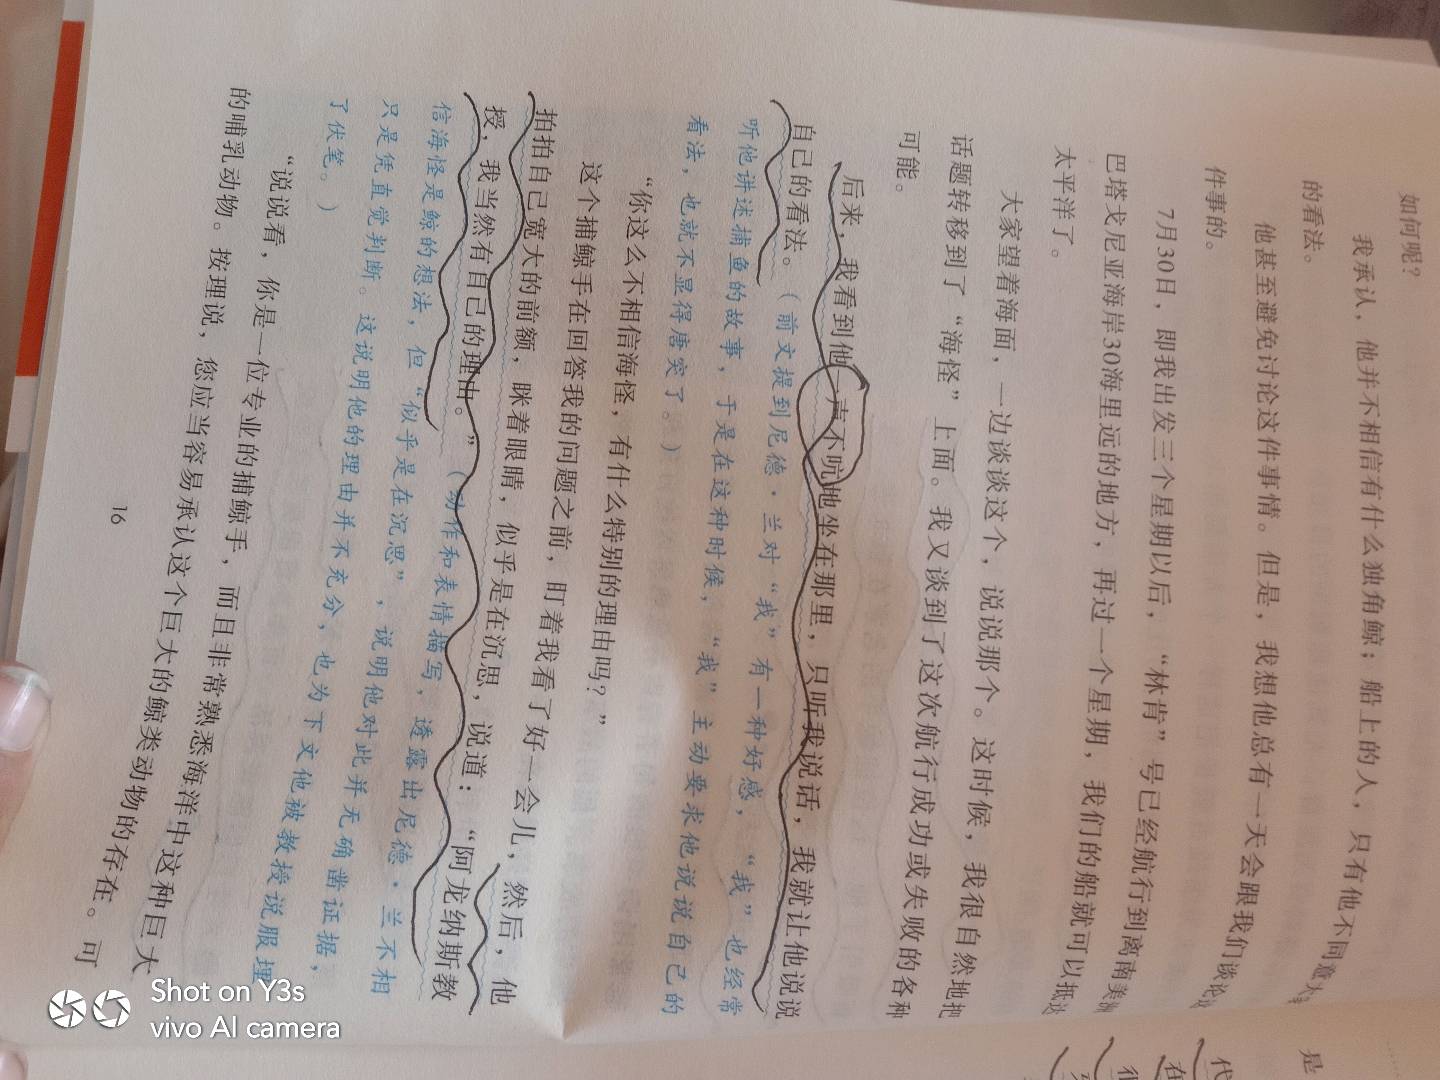 如何呢？
我承认，他并不相信有什么独角鲸；船上的人，只有他不同意大家
的看法。
他甚至避免讨论这件事情。但是，我想他总有一天会跟我们谈论这
件事的。
7月30日，即我出发三个星期以后，“林肯”号已经航行到离南美洲
巴塔戈尼亚海岸30海里远的地方，再过一个星期，我们的船就可以抵达
太平洋了。
大家望着海面，一边谈谈这个，说说那个。这时候，我很自然地把
话题转移到了“海怪”上面。我又谈到了这次航行成功或失败的各种
可能。
后来，我看到他一声不吭地坐在那里，只听我说话，我就让他说说
自己的看法。（前文提到尼德·兰对“我”有一种好感，“我”也经常
听他讲述捕鱼的故事，于是在这种时候，“我”主动要求他说说自己的
看法，也就不显得唐突了。）
“你这么不相信海怪，有什么特别的理由吗？”
这个捕鲸手在回答我的问题之前，盯着我看了好一会儿，然后，他
拍拍自己宽大的前额，眯着眼睛，似乎是在沉思，说道：“阿龙纳斯教
授，我当然有自己的理由。”（动作和表情描写，透露出尼德·兰不相
信海怪是鲸的想法，但“似乎是在沉思”，说明他对此并无确凿证据，
只是凭直觉判断。这说明他的理由并不充分，也为下文他被教授说服埋
了伏笔。）
“说说看，你是一位专业的捕鲸手，而且非常熟悉海洋中这种巨大
的哺乳动物。按理说，您应当容易承认这个巨大的鲸类动物的存在。可
16
是
代
在
Shot on Y3s
vivo AI camera